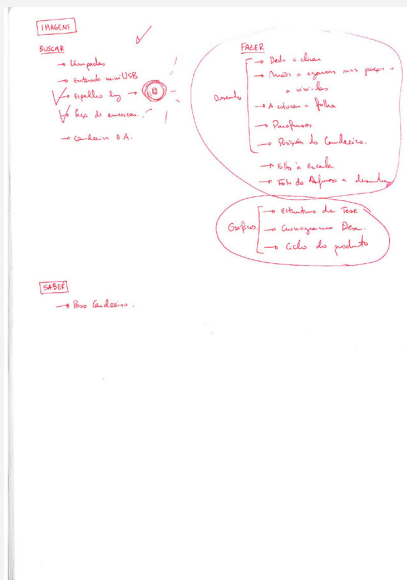 IMAGENS
BUSCAR
→ Lâmpadas
→ entrada mini USB
→ Espelho luz →
→ Peça de
→ Candeeiro B.A.
FAZER
Desenhos
→ Dedo a clicar
→ Mãos a agarrar nas peças e
a
→ A colocar a folha
→ Parafusos
→ Posição do Candeeiro.
→ à escala
→ Foto do a desenhar
Gráficos
→ Estrutura da Tese
→ Cronograma Des.
→ Ciclo do produto
SABER
→ Peso Candeeiro.